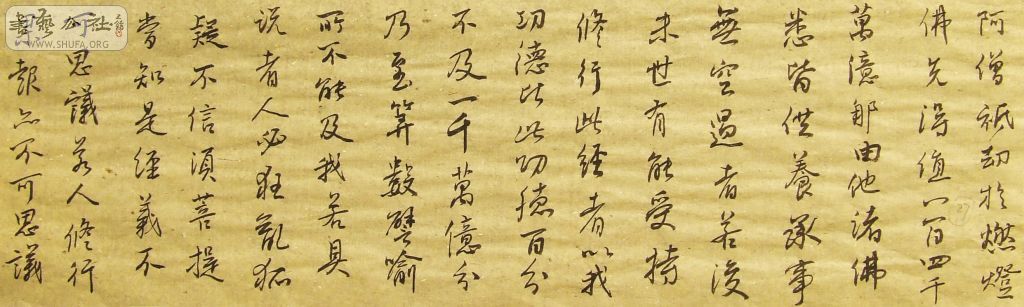 阿僧祇劫於燃燈
佛先得值八百四千
萬億那由他諸佛
悉皆供養承事
無空過者若後
末世有能受持
修行此經者以我
功德比此功德百分
不及一千萬億分
乃至算數譬喻
所不能及我若具
說者人必狂亂狐
疑不信須菩提
當知是經義不
可思議若人修行
報亦不可思議
書藝公社
WWW.SHUFA.ORG